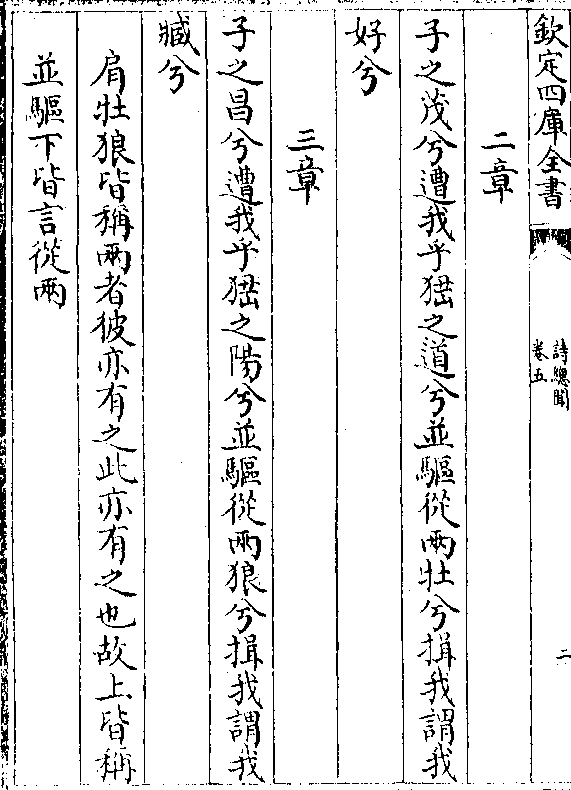 欽定四庫全書
詩總聞
卷五
二
二章
子之茂兮遭我乎猺之道兮並驅從兩牡兮揖我謂我
好兮
三章
子之昌兮遭我乎猺之陽兮並驅從兩狼兮揖我謂我
臧兮
肩牡狼皆稱兩者彼亦有之此亦有之也故上皆稱
並驅下皆言從兩